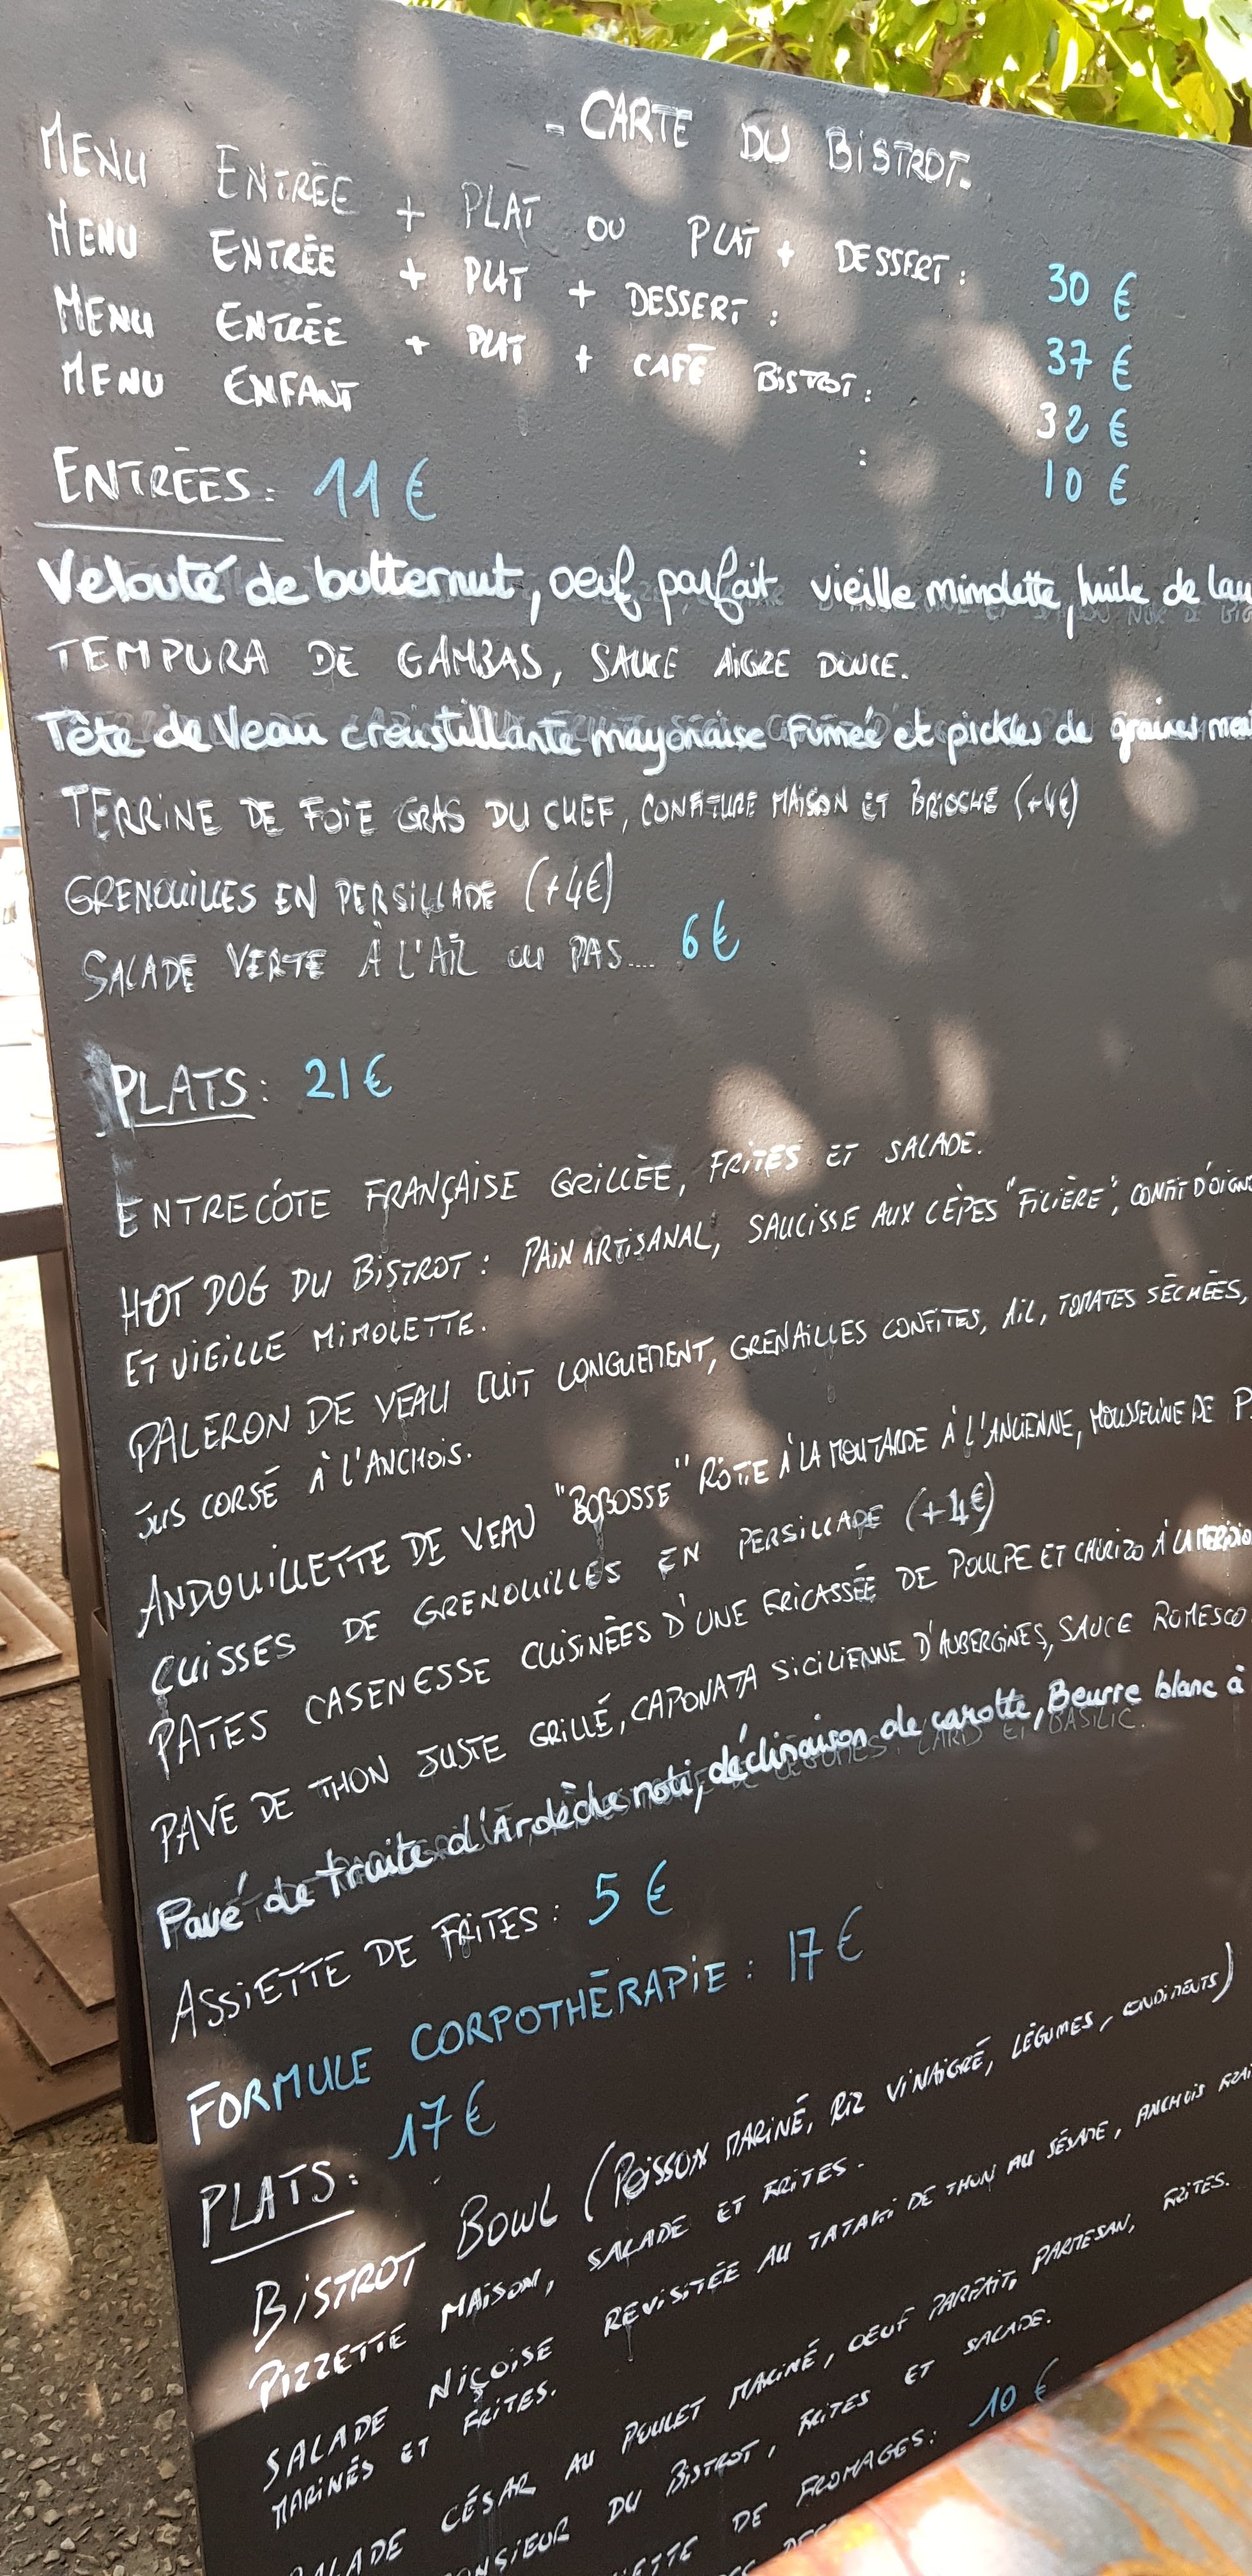 - CARTE DU BISTROT.
MENU ENTRÉE + PLAT OU PLAT + DESSERT : 30 €
MENU ENTRÉE + PLAT + DESSERT : 37 €
MENU ENTRÉE + PLAT + CAFÉ BISTROT : 32 €
MENU ENFANT : 10 €
ENTRÉES : 11 €
Velouté de butternut, oeuf parfait vieille mimolette, huile de lau
TEMPURA DE GAMBAS, SAUCE AIGRE DOUCE.
Tête de Veau croustillante mayonaise Fumée et pickles de graines
TERRINE DE FOIE GRAS DU CHEF, CONFITURE MAISON ET BRIOCHE (+4€)
GRENOUILLES EN PERSILLADE (+4€)
SALADE VERTE À L'AIL OU PAS.... 6€
PLATS : 21€
ENTRECÔTE FRANÇAISE GRILLÉE, FRITES ET SALADE.
HOT DOG DU BISTROT : PAIN ARTISANAL, SAUCISSE AUX CÈPES "FILIÈRE", CONFIT D'OIGN
ET VIEILLE MIMOLETTE.
PALERON DE VEAU CUIT LONGUEMENT, GRENAILLES CONFITES, AIL, TOMATES SÉCHÉES,
JUS CORSÉ À L'ANCHOIS.
ANDOUILLETTE DE VEAU "BOBOSSE" RÔTIE À LA MOUTARDE À L'ANCIENNE, MOUSSELINE DE P
CUISSES DE GRENOUILLES EN PERSILLADE (+4€)
PATES CASENESSE CUISINÉES D'UNE FRICASSÉE DE POULPE ET CHORIZO À LA
PAVÉ DE THON JUSTE GRILLÉ, CAPONATA SICILIENNE D'AUBERGINES, SAUCE ROMESCO
Pavé de truite d'Ardèche roti, déclinaison de carotte, Beurre blanc à
ASSIETTE DE FRITES : 5 €
FORMULE CORPOTHÉRAPIE : 17 €
PLATS : 17 €
BISTROT BOWL (POISSON MARINÉ, RIZ VINAIGRÉ, LÉGUMES, CONDIMENTS)
PIZZETTE MAISON, SALADE ET FRITES.
SALADE NIÇOISE REVISITÉE AU TATAKI DE THON AU SÉSAME, ANCHOIS FRAI
MARINÉS ET FRITES.
ALADE CÉSAR AU POULET MARINÉ, OEUF PARFAIT, PARMESAN, FRITES.
ONSIEUR DU BISTROT, FRITES ET SALADE.
IETTE DE FROMAGES : 10 €